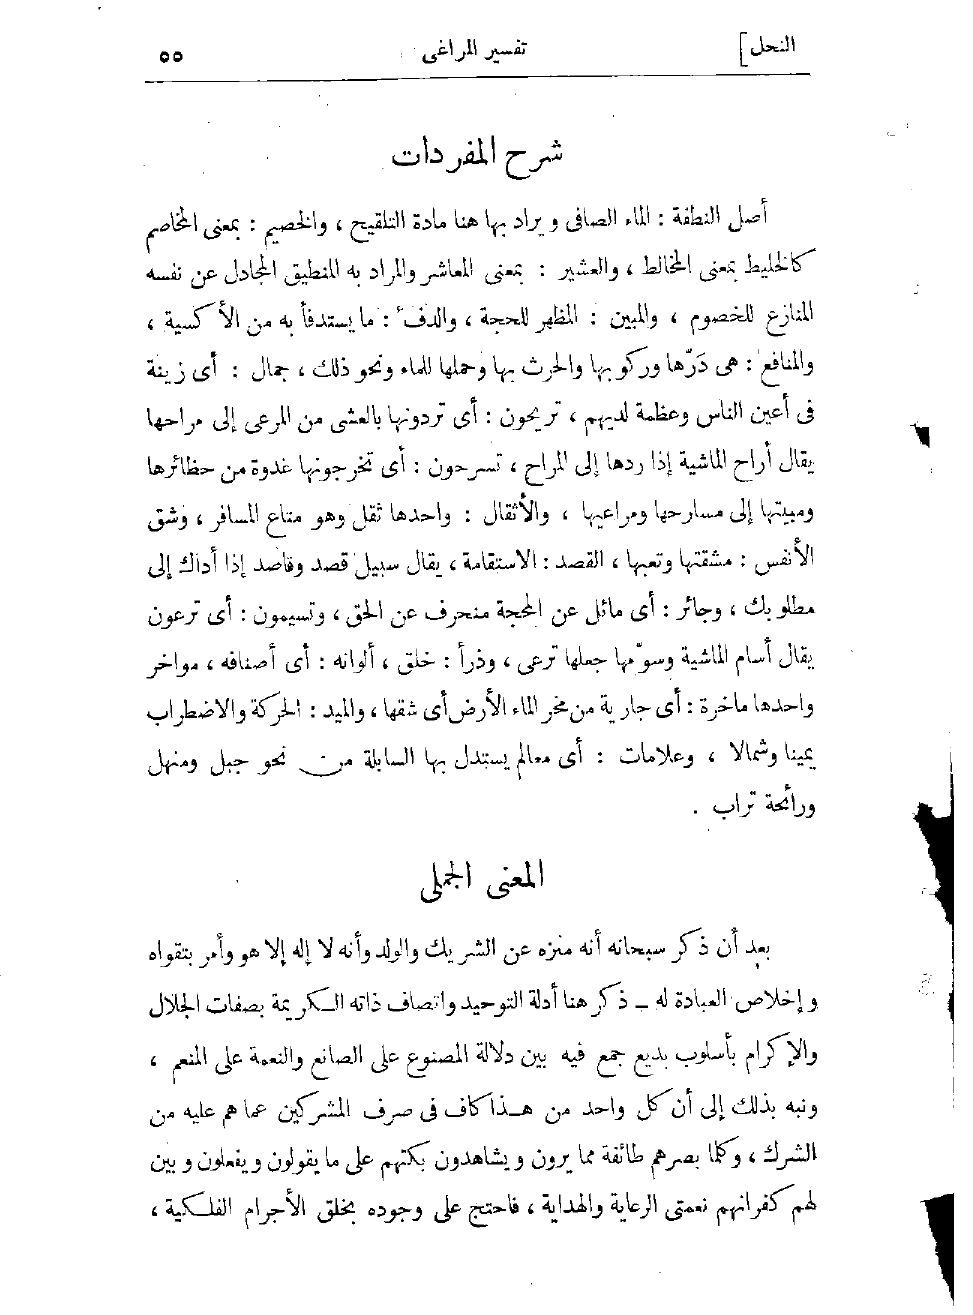 النحل]
تفسير المراغى
٥٥
شرح المفردات
أصل النطفة : الماء الصافى ويراد بها هنا مادة التلقيح ، والخصيم : بمعنى المخاصم
كالخليط بمعنى المخالط ، والعشير : بمعنى المعاشر والمراد به المنطيق المجادل عن نفسه
المنازع للخصوم ، والمبين : المظهر للحجة ، والدفء : ما يستدفأ به من الأكسية ،
والمنافع : هى دَرّها وركوبها والحرث بها وحملها للماء ونحو ذلك ، جمال : أى زينة
فى أعين الناس وعظمة لديهم ، تريحون : أى تردونها بالعشى من المرعى إلى مراحها
يقال أراح الماشية إذا ردها إلى المراح ، تسرحون : أى تخرجونها غدوة من حظائرها
ومبيتها إلى مسارحها ومراعيها ، والأثقال : واحدها ثقل وهو متاع المسافر ، وشق
الأنفس : مشقتها وتعبها ، القصد : الاستقامة ، يقال سبيل قصد وقاصد إذا أداك إلى
مطلوبك ، وجائر : أى مائل عن المحجة منحرف عن الحق ، وتسيمون : أى ترعون
يقال أسام الماشية وسوّمها جعلها ترعى ، وذرأ : خلق ، ألوانه : أى أصنافه ، مواخر
واحدها ماخرة : أى جارية من مخر الماء الأرض أى شقها ، والميد : الحركة والاضطراب
يمينا وشمالا ، وعلامات : أى معالم يستدل بها السابلة من نحو جبل ومنهل
ورائحة تراب .
المعنى الجملى
بعد أن ذكر سبحانه أنه منزه عن الشريك والولد وأنه لا إله إلا هو وأمر بتقواه
وإخلاص العبادة له ــ ذكر هنا أدلة التوحيد واتصاف ذاته الكريمة بصفات الجلال
والإكرام بأسلوب بديع جمع فيه بين دلالة المصنوع على الصانع والنعمة على المنعم ،
ونبه بذلك إلى أن كل واحد من هذا كاف فى صرف المشركين عما هم عليه من
الشرك ، وكلما بصرهم طائفة مما يرون ويشاهدون بكتهم على ما يقولون ويفعلون وبين
لهم كفرانهم نعمتى الرعاية والهداية ، فاحتج على وجوده بخلق الأجرام الفلكية ،